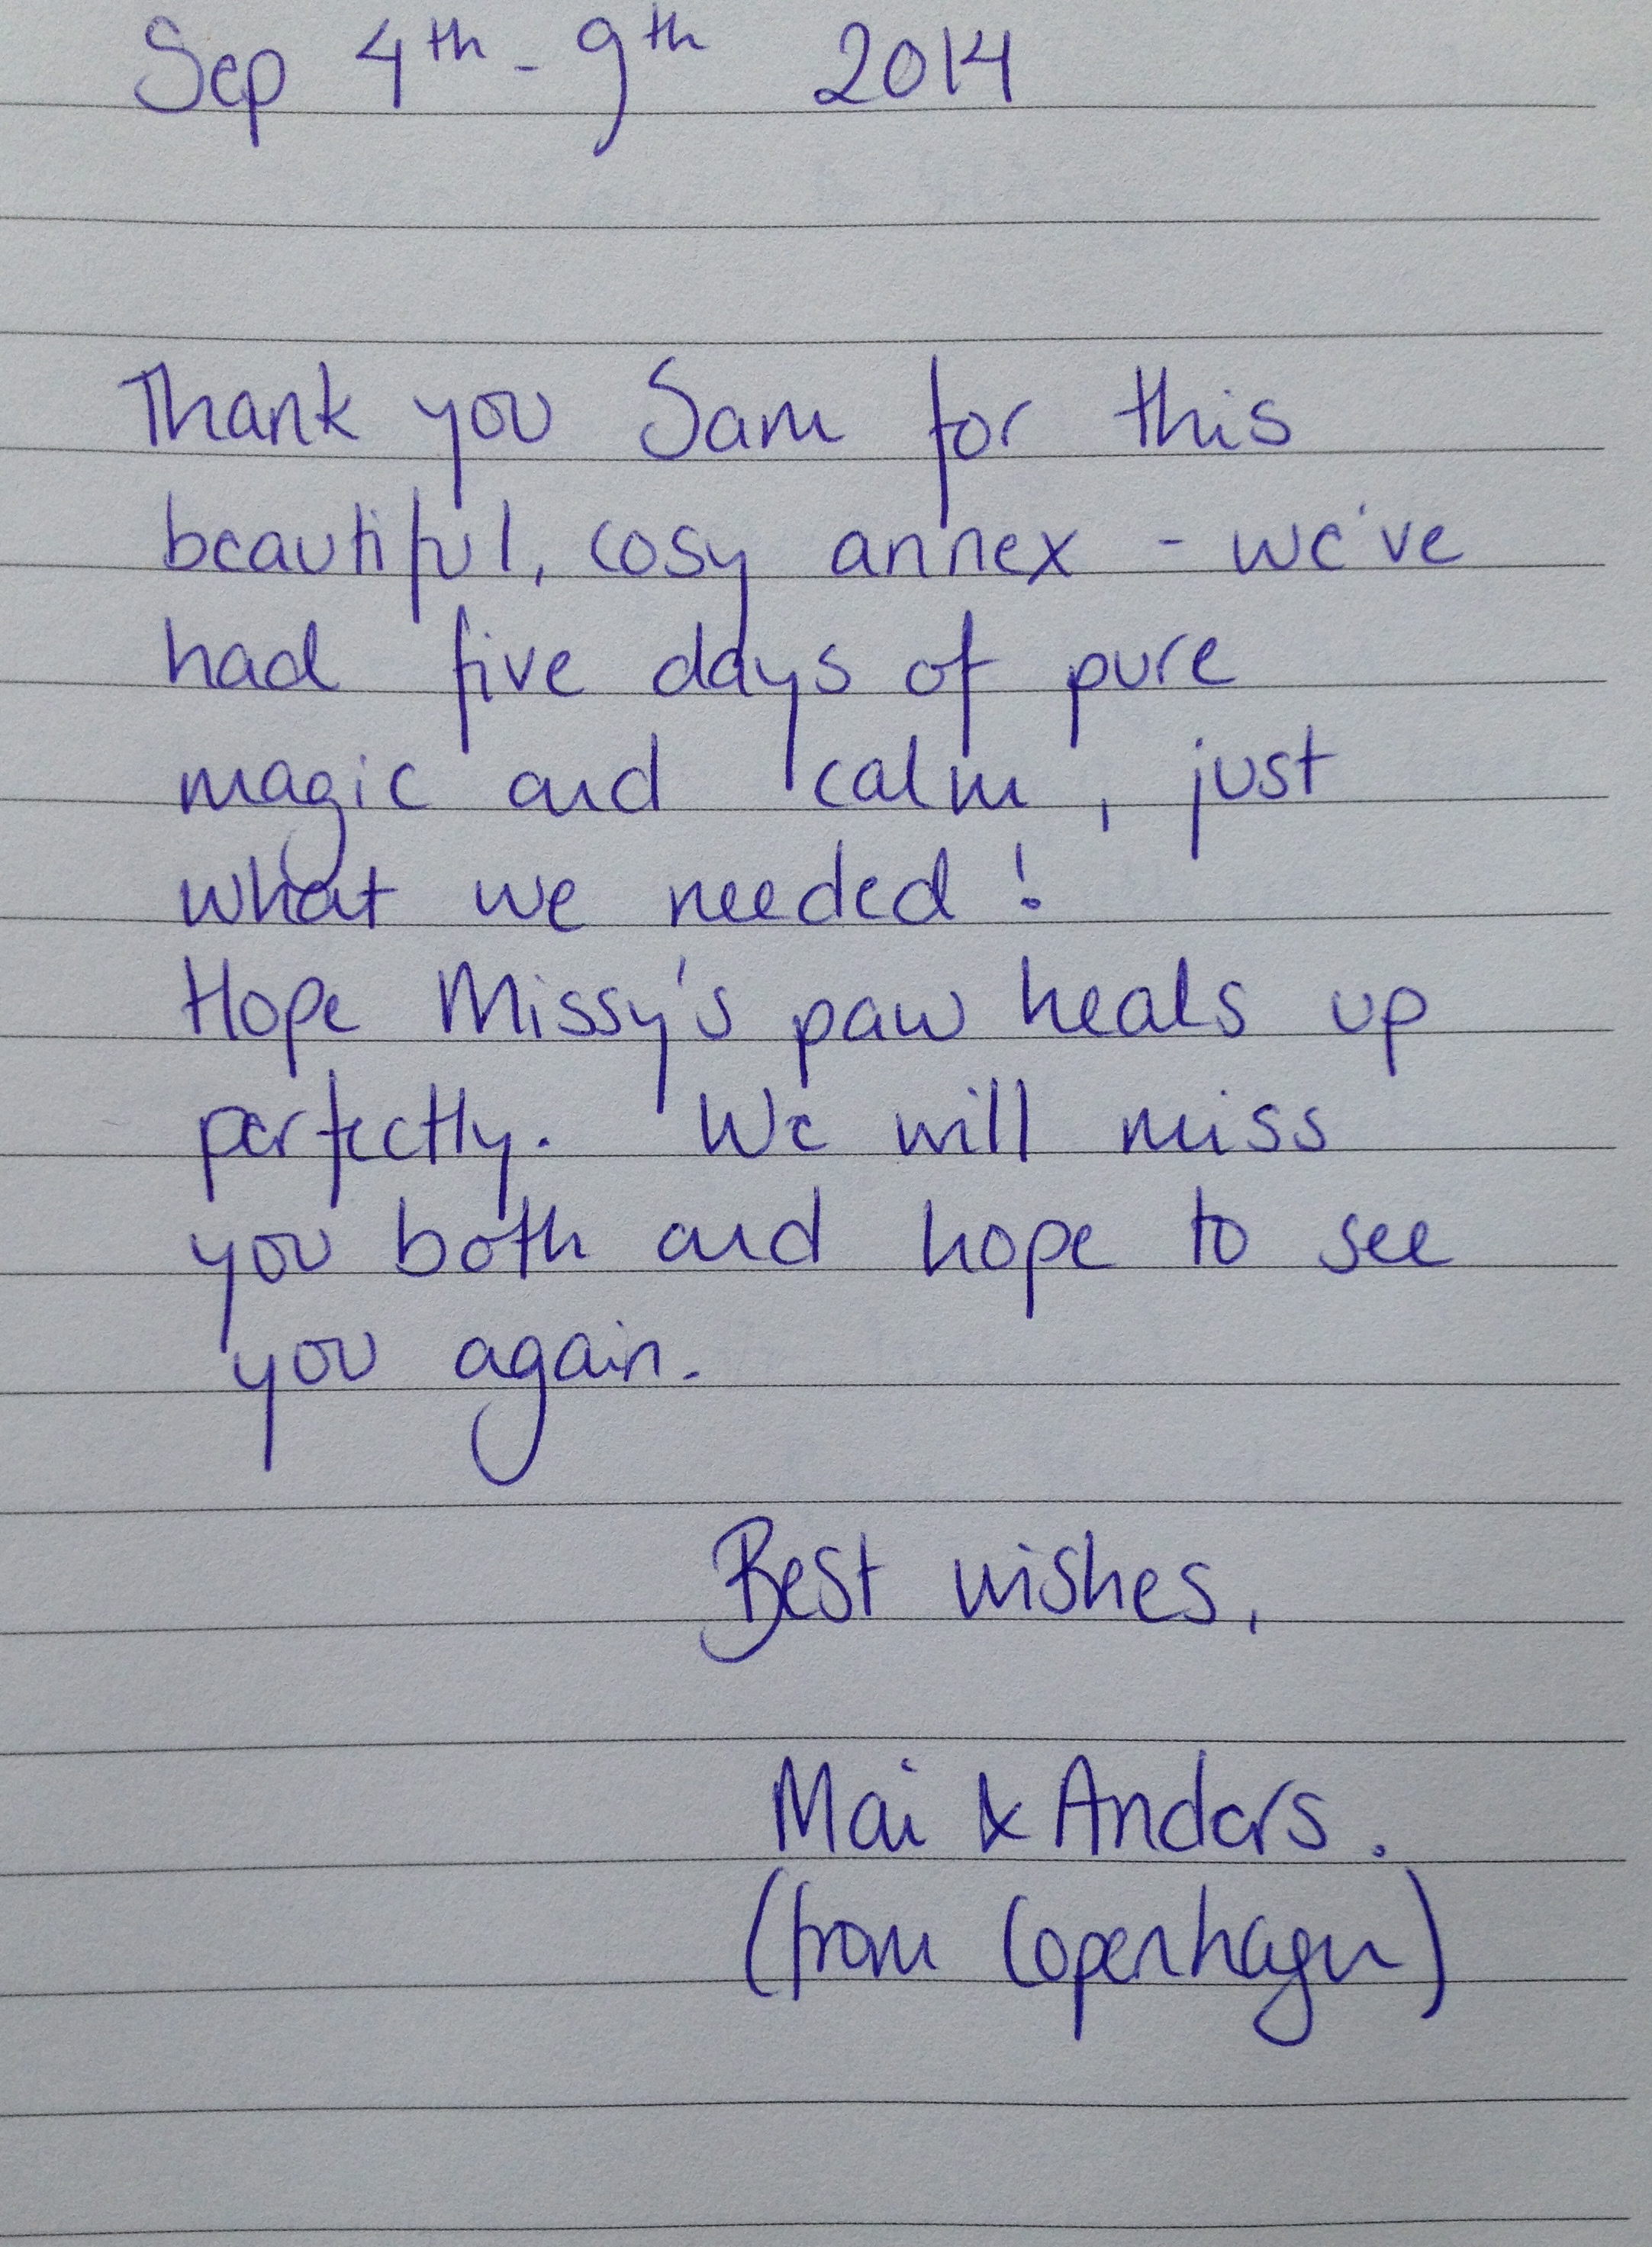 Sep 4th - 9th 2014
Thank you Sam for this
beautiful, cosy annex - we've
had five days of pure
magic and calm, just
what we needed!
Hope Missy's paw heals up
perfectly. We will miss
you both and hope to see
you again.
Best wishes,
Mai & Anders.
(from Copenhagen)